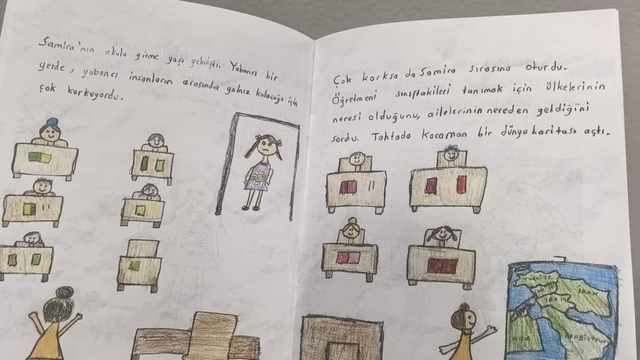 Samira'nın okula gitme yaşı gelmişti. Yabancı bir
yerde, yabancı insanların arasında yalnız kalacağı için
çok korkuyordu.
Çok korksa da Samira sırasına oturdu.
Öğretmeni sınıftakileri tanımak için ülkelerinin
neresi olduğunu, ailelerinin nereden geldiğini
sordu. Tahtada kocaman bir dünya haritası açtı.